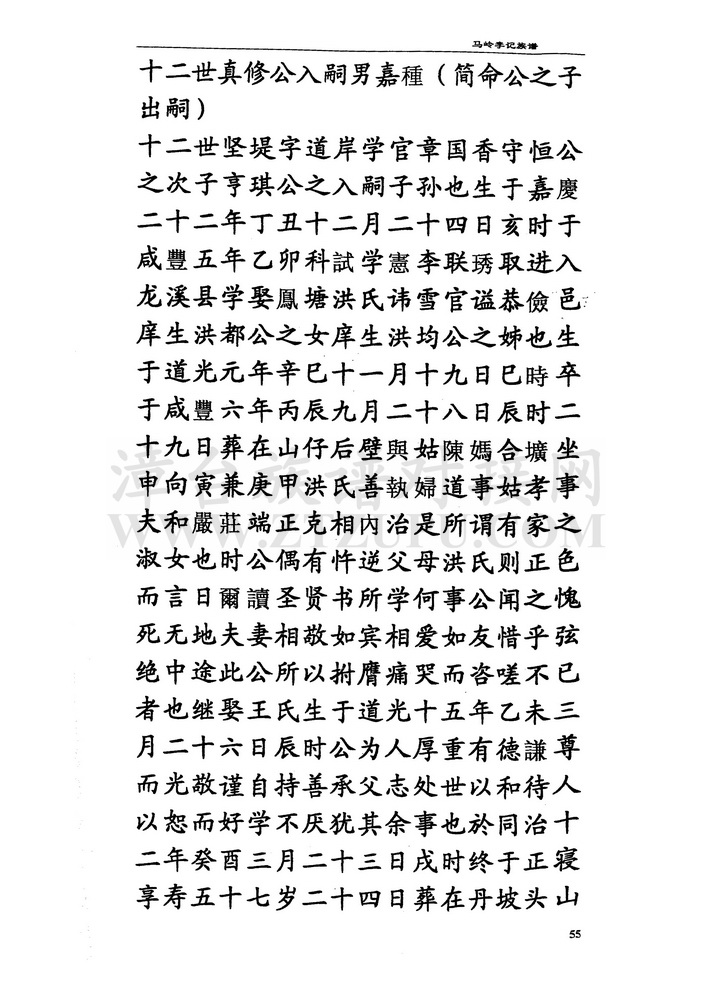 马岭李记族谱
十二世真修公入嗣男嘉種（简命公之子
出嗣）
十二世坚堤字道岸学官章国香守恒公
之次子亨琪公之入嗣子孙也生于嘉慶
二十二年丁丑十二月二十四日亥时于
咸豐五年乙卯科試学憲李联琇取进入
龙溪县学娶鳳塘洪氏讳雪官谥恭儉邑
庠生洪都公之女庠生洪均公之姊也生
于道光元年辛巳十一月十九日巳時卒
于咸豐六年丙辰九月二十八日辰时二
十九日葬在山仔后壁與姑陳媽合壙坐
申向寅兼庚甲洪氏善執婦道事姑孝事
夫和嚴莊端正克相內治是所谓有家之
淑女也时公偶有忤逆父母洪氏则正色
而言日爾讀圣贤书所学何事公闻之愧
死无地夫妻相敬如宾相爱如友惜乎弦
绝中途此公所以拊膺痛哭而咨嗟不已
者也继娶王氏生于道光十五年乙未三
月二十六日辰时公为人厚重有德謙尊
而光敬谨自持善承父志处世以和待人
以恕而好学不厌犹其余事也於同治十
二年癸酉三月二十三日戌时终于正寝
享寿五十七岁二十四日葬在丹坡头山
漳台族谱对接网
WWW.ZTZUPU.COM
55